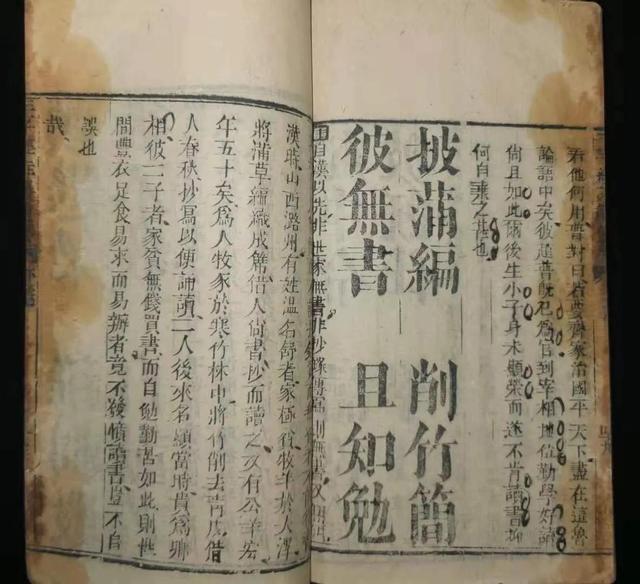 君他何用普對曰若要齊家治國平天下盡在這魯
論語中矣彼趙普既已爲官到宰相地位勤學好讀
尚且如此爾後生小子身未顯榮而遂不肯讀書抑
何自棄之甚也
披蒲編 削竹簡
彼無書 且知勉
自漢以先非世家無書非抄錄傳寫則無書又
漢時山西潞州有姓溫名舒者家極貧牧羊於大澤
將蒲草編織成蓆借人尚書抄而讀之又有公羊宏
年五十矣爲人牧豕於寒竹林中將竹削去青皮借
人春秋抄寫以便誦讀二人後來名顯當時貴爲卿
相彼二子者家貧無錢買書而自勉勤苦如此則世
間豐衣足食易求而易辦者竟不發憤讀書豈不自
誤也
哉